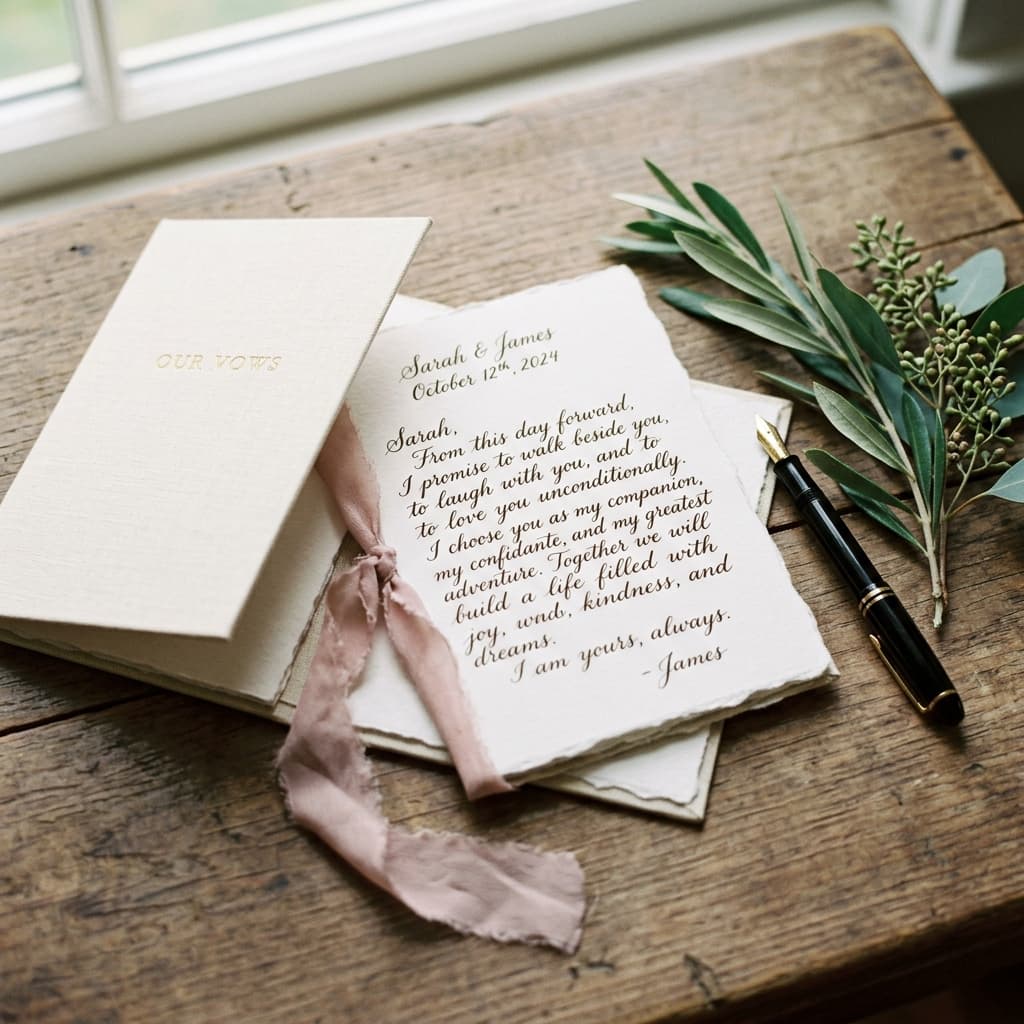 OUR VOWS
Sarah & James
October 12th, 2024
Sarah,
From this day forward,
I promise to walk beside you,
to laugh with you, and to
to love you unconditionally.
I choose you as my companion,
my confidante, and my greatest
adventure. Together we will
build a life filled with
joy, kindness, and
dreams.
I am yours, always.
-James